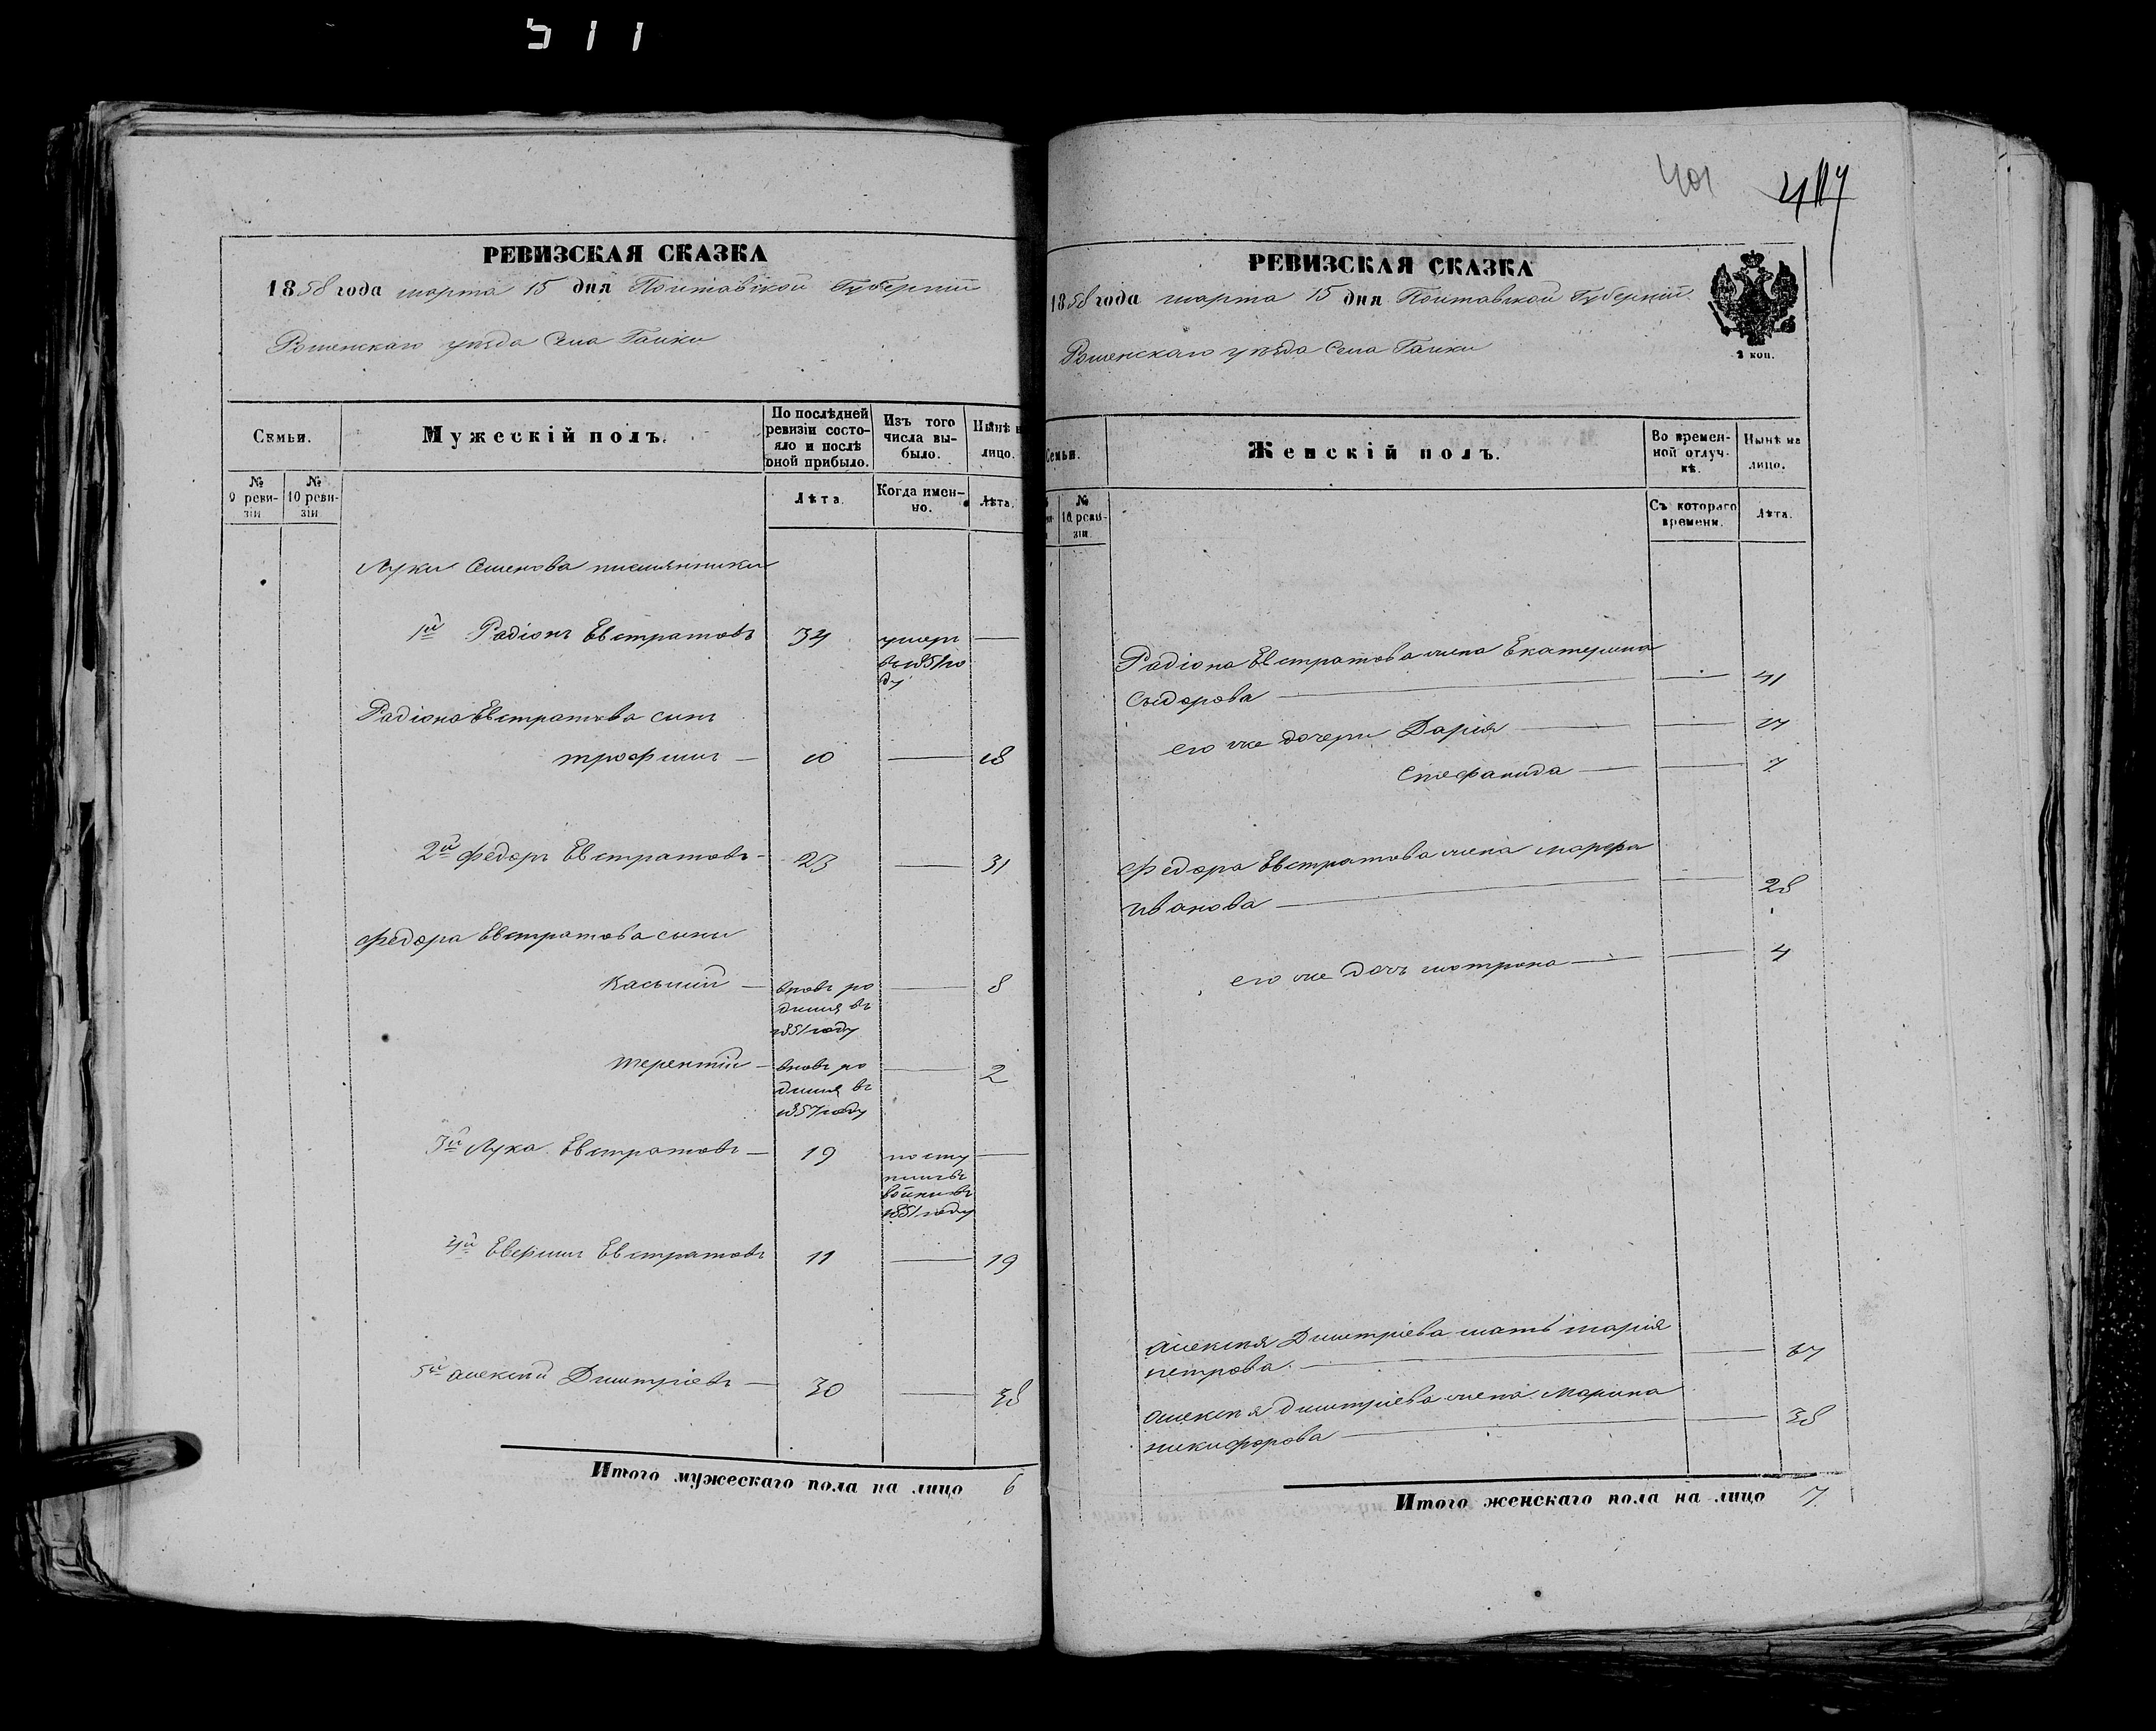 511
РЕВИЗСКАЯ СКАЗКА
1858 года марта 15 дня Полтавской Губерніи
Роменскаго уѣзда Села Галки
Семьи.
Мужескій полъ.
По послѣдней ревизіи состояло и послѣ оной прибыло.
Изъ того числа выбыло.
Нынѣ н
лицо.
№ 9 ревизіи
№ 10 ревизіи
Лѣта.
Когда именно.
Лѣта.
Луки Семенова племянники
1й Радіонъ Евстратовъ 34 умеръ —
въ 1851 го
ду
Радіона Евстратова сынъ
трофимъ — 10 — 18
2й федоръ Евстратовъ - 23 — 31
федора Евстратова сыны
Касьянъ — вновь ро — 8
дился въ
1851 году
терентій — вновь ро — 2
дился въ
1857 году
3й Лука Евстратовъ — 19 посту —
пилъ въ
1851 году
4й Евфимъ Евстратовъ 11 — 19
5й алексѣй Дмитріевъ — 30 — 38
Итого мужескаго пола на лицо 6
401 417
РЕВИЗСКАЯ СКАЗКА
1858 года марта 15 дня Полтавской Губерніи.
Роменскаго уѣзда Села Галки
2 коп.
Семьи.
Женскій полъ.
Во временной отлучкѣ.
Нынѣ на лицо.
№ 10 ревизіи.
Съ котораго времени.
Лѣта.
Радіона Евстратова жена Екатерина
Сыдорова — — 41
его же дочери Дарія — — 17
Стефанида — — 7
Федора Евстратова жена марфа
иванова — — 28
его же дочь мотрона — — 4
алексѣя Дмитріева мать марія
петрова — — 67
алексѣя дмитріева жена Марина
никифорова — — 38
Итого женскаго пола на лицо 7